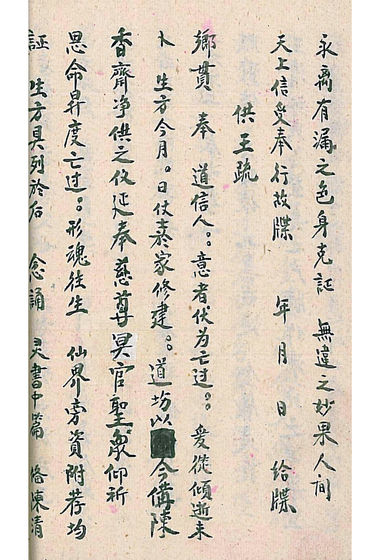 永离有漏之色身克証 無違之妙果人间
天上信受奉行故牒 年月日 给牒
供王疏
鄉貫 奉 道信人。。意者伏为亡过。。爰從傾逝未
卜生方今月。日仗泰家修建。。道坊以 今備陳
香齋净供之仪延奉慈尊冥官聖衆仰祈
恩命昇度亡过。。形魂往生 仙界旁資附荐均
証 生方具列於后 念誦 灵書中篇 陳清